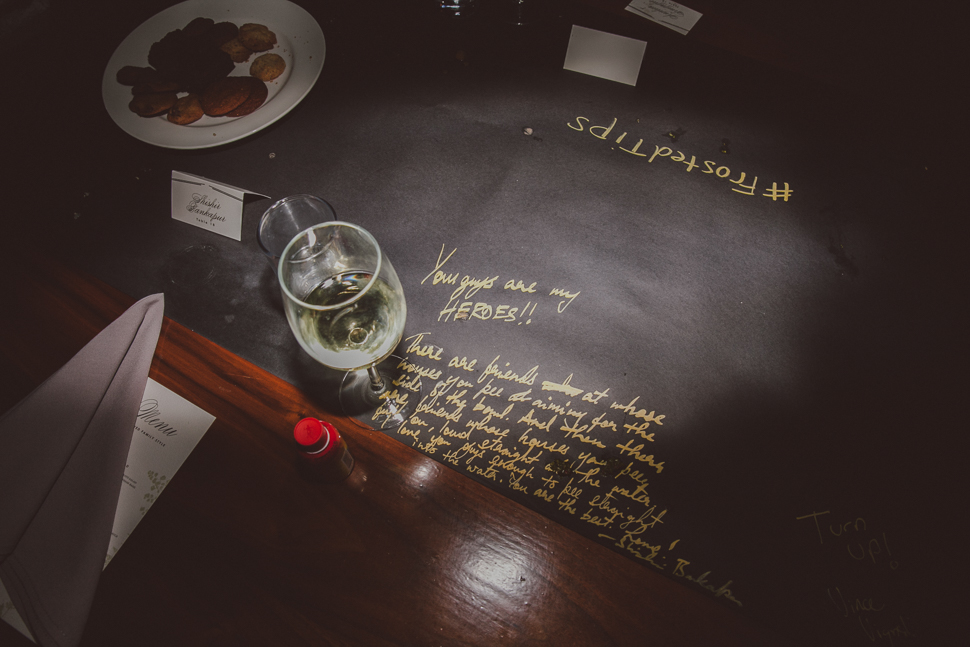 #FrostedTips
Shishir
Bankapur
TABLE 14
You guys are my
HEROES!!
There are friends at whose
houses you pee aiming for the
side of the bowl. And then there
are friends whose houses you pee
fun, loud straight in the water.
I love you guys enough to pee straight
into the water. You are the best.
Menu
FAMILY STYLE
Turn
up!